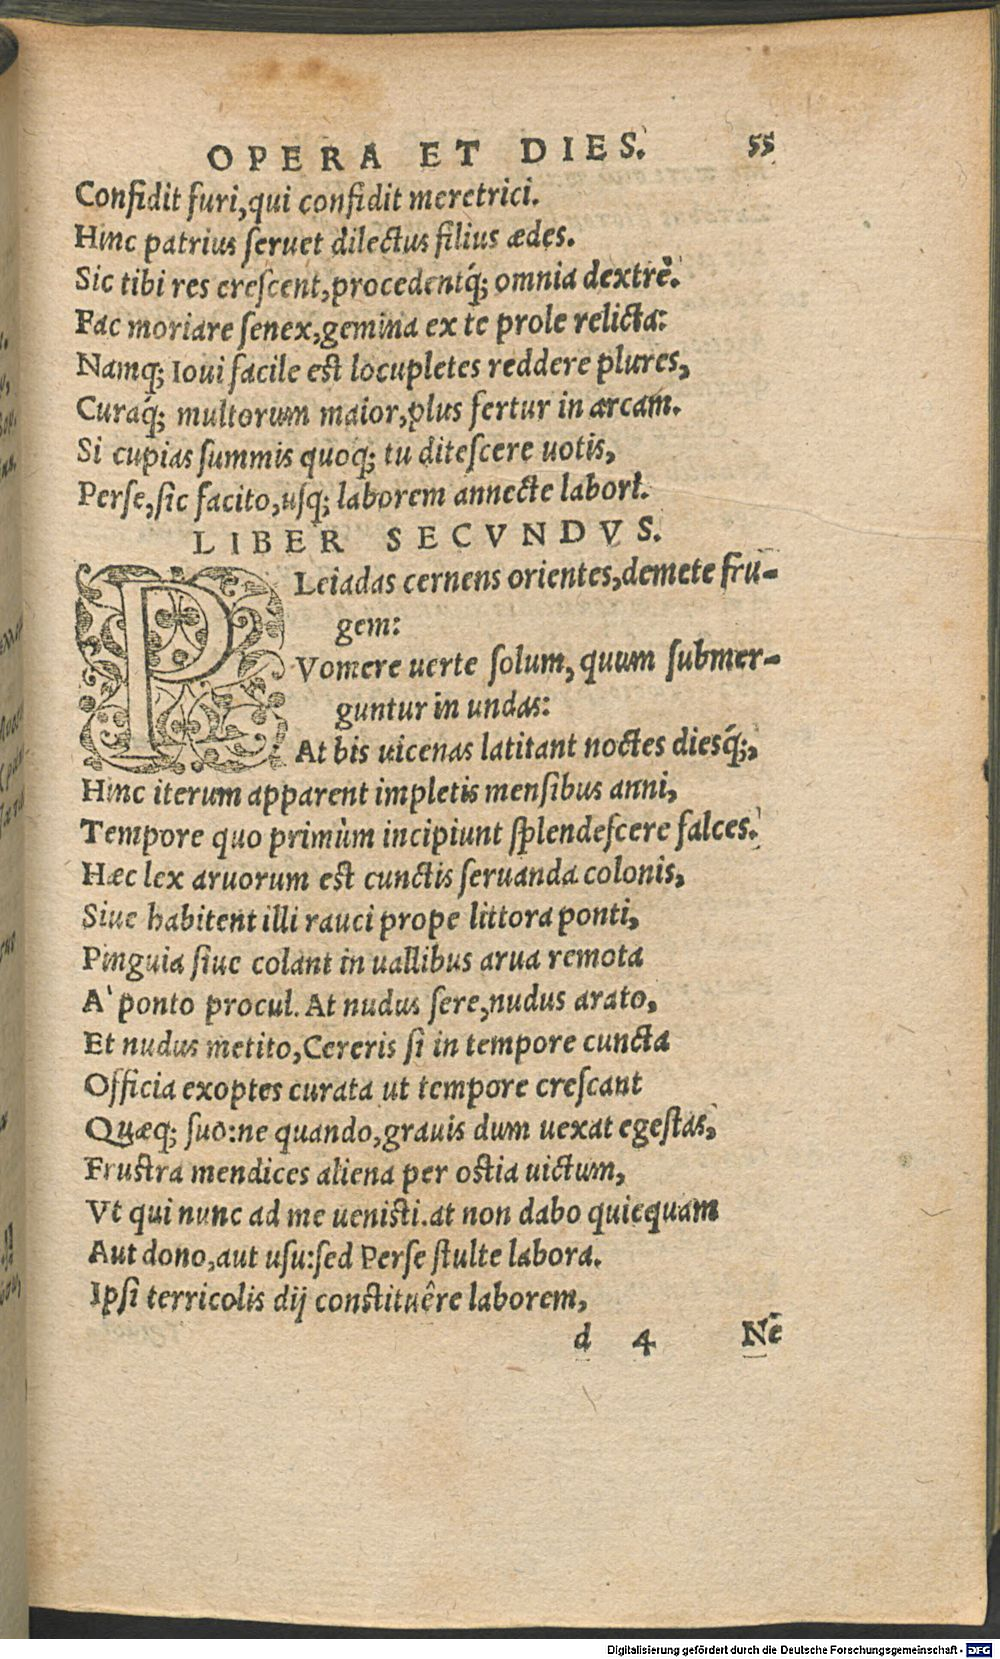 OPERA ET DIES. 55
Confidit furi, qui confidit meretrici.
Hinc patrius seruet dilectus filius ædes.
Sic tibi res crescent, procedentq́; omnia dextrè.
Fac moriare senex, gemina ex te prole relicta:
Namq; Ioui facile est locupletes reddere plures,
Curaq́; multorum maior, plus fertur in arcam.
Si cupias summis quoq; tu ditescere uotis,
Perse, sic facito, usq; laborem annecte labori.
LIBER SECVNDVS.
PLeiadas cernens orientes, demete fru-
gem:
Vomere uerte solum, quum submer-
guntur in undas:
At bis uicenas latitant noctes diesq́;,
Hinc iterum apparent impletis mensibus anni,
Tempore quo primùm incipiunt splendescere falces.
Hæc lex aruorum est cunctis seruanda colonis,
Siue habitent illi rauci prope littora ponti,
Pinguia siue colant in uallibus arua remota
A' ponto procul. At nudus sere, nudus arato,
Et nudus metito, Cereris si in tempore cuncta
Officia exoptes curata ut tempore crescant
Quæq; suo: ne quando, grauis dum uexat egestas,
Frustra mendices aliena per ostia uictum,
Vt qui nunc ad me uenisti. at non dabo quicquam
Aut dono, aut usu: sed Perse stulte labora.
Ipsi terricolis dij constituêre laborem,
d 4 Ne
Digitalisierung gefördert durch die Deutsche Forschungsgemeinschaft - DFG